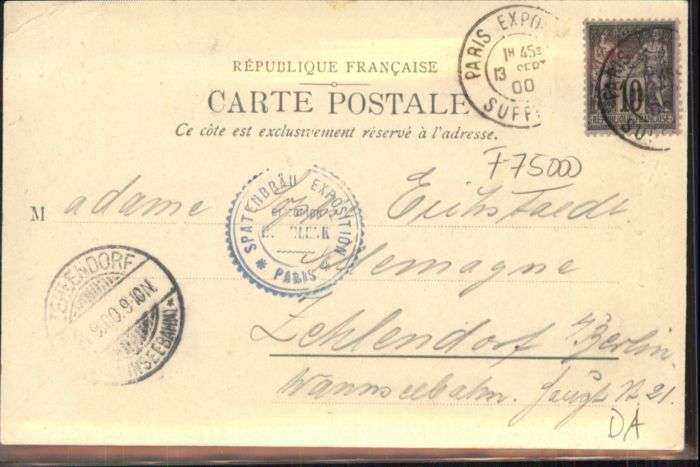 RÉPUBLIQUE FRANÇAISE
CARTE POSTALE
Ce côté est exclusivement réservé à l'adresse.
PARIS EXPO
1H 45S
13 SEPT
00
SUFF
10
RÉPUBLIQUE FRANÇAISE
F75000
Madame Eichstaedt
SPATENBRÄU EXPOSITION
PARIS
Allemagne
Zehlendorf b/Berlin
Wannseebahn. 21.
ZEHLENDORF
9-10N.
WANNSEEBAHN
DA